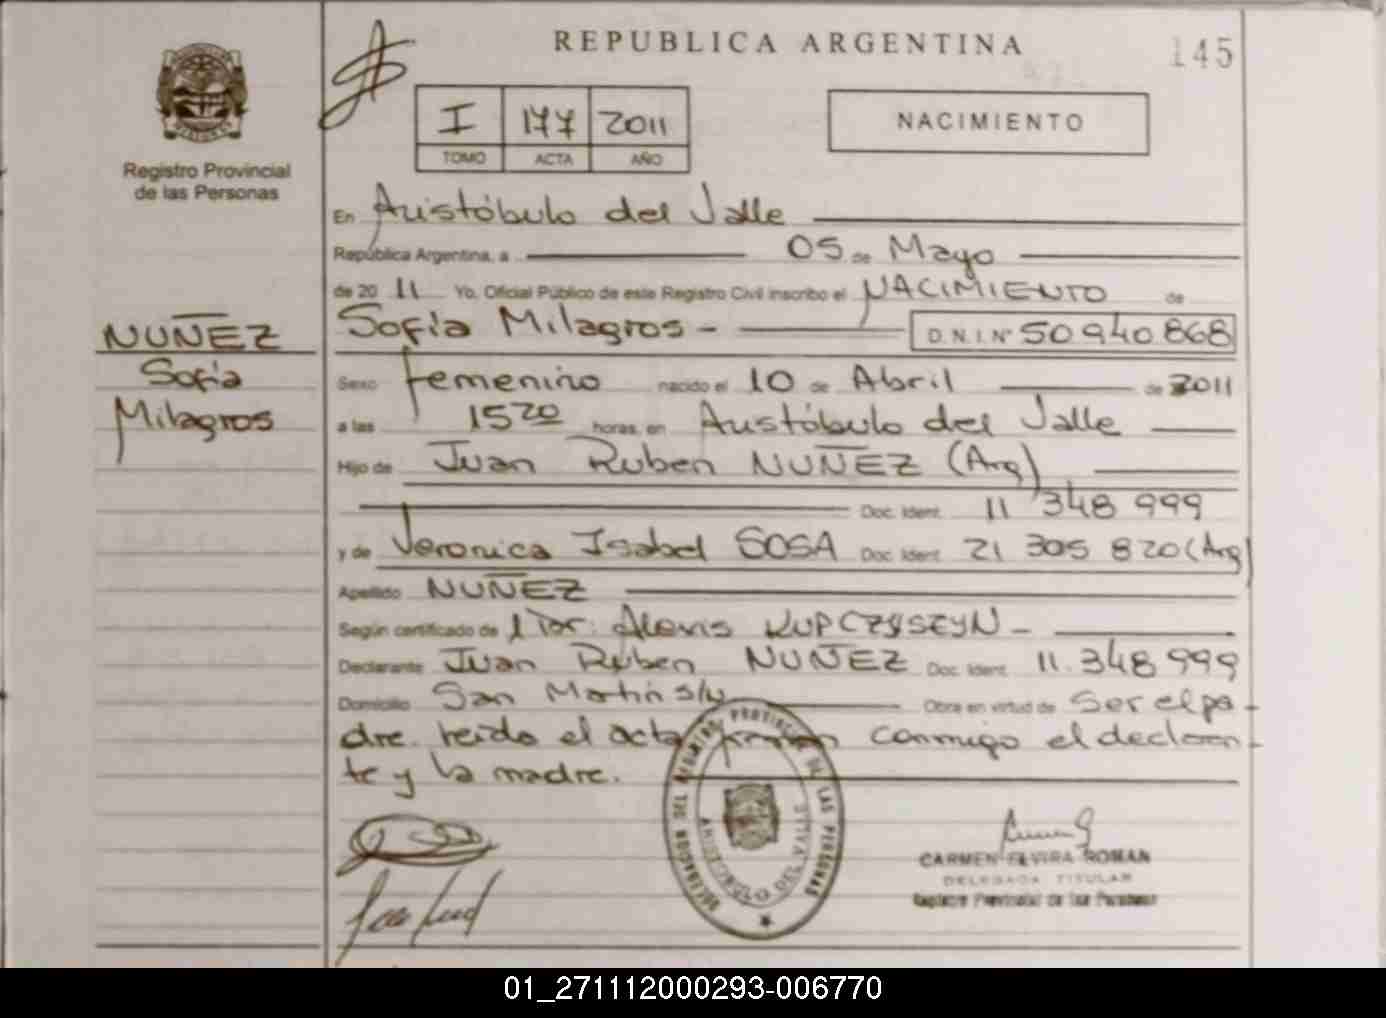 REPUBLICA ARGENTINA
145
Registro Provincial
de las Personas
I 177 2011
TOMO ACTA AÑO
NACIMIENTO
En Aristóbulo del Valle
República Argentina, a 05 de Mayo
de 2011 Yo, Oficial Público de este Registro Civil inscribo el NACIMIENTO de
Sofia Milagros - D.N.I.Nº 50 940 868
NUÑEZ
Sofia
Milagros
Sexo femenino nacido el 10 de Abril de 2011
a las 15 20 horas, en Aristóbulo del Valle
Hijo de Juan Ruben NUÑEZ (Arg)
Doc. Ident. 11 348 999
y de Veronica Isabel SOSA Doc. Ident. 21 305 820 (Arg)
Apellido NUÑEZ
Según certificado de Alexis KUPCZYSZYN -
Declarante Juan Ruben NUÑEZ Doc. Ident. 11.348 999
Domicilio San Martin s/n Obra en virtud de Ser el pa-
dre. leido el acta firman conmigo el declaran-
te y la madre.
REGISTRO PROVINCIAL DE LAS PERSONAS
ARISTOBULO DEL VALLE
CARMEN ELVIRA ROMAN
DELEGADA TITULAR
Registro Provincial de las Personas
01_271112000293-006770